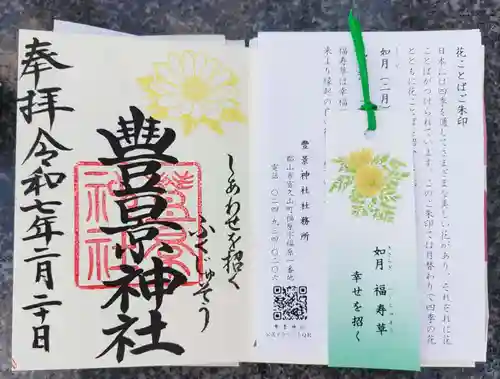 奉拝
令和七年二月二十日
豊景神社
しあわせを招く
ふくじゅそう
花ことばご朱印
日本には四季を通してさまざまな美しい花があり、それぞれに花
ことばがつけられています。このご朱印では月替わりで四季の花
とともに花ことばを
如月(二月)
福寿草は幸福
来より縁起の
豊景神社社務所
郡山市富久山町福原字福原一番地
電話
如月 福寿草
幸せを招く